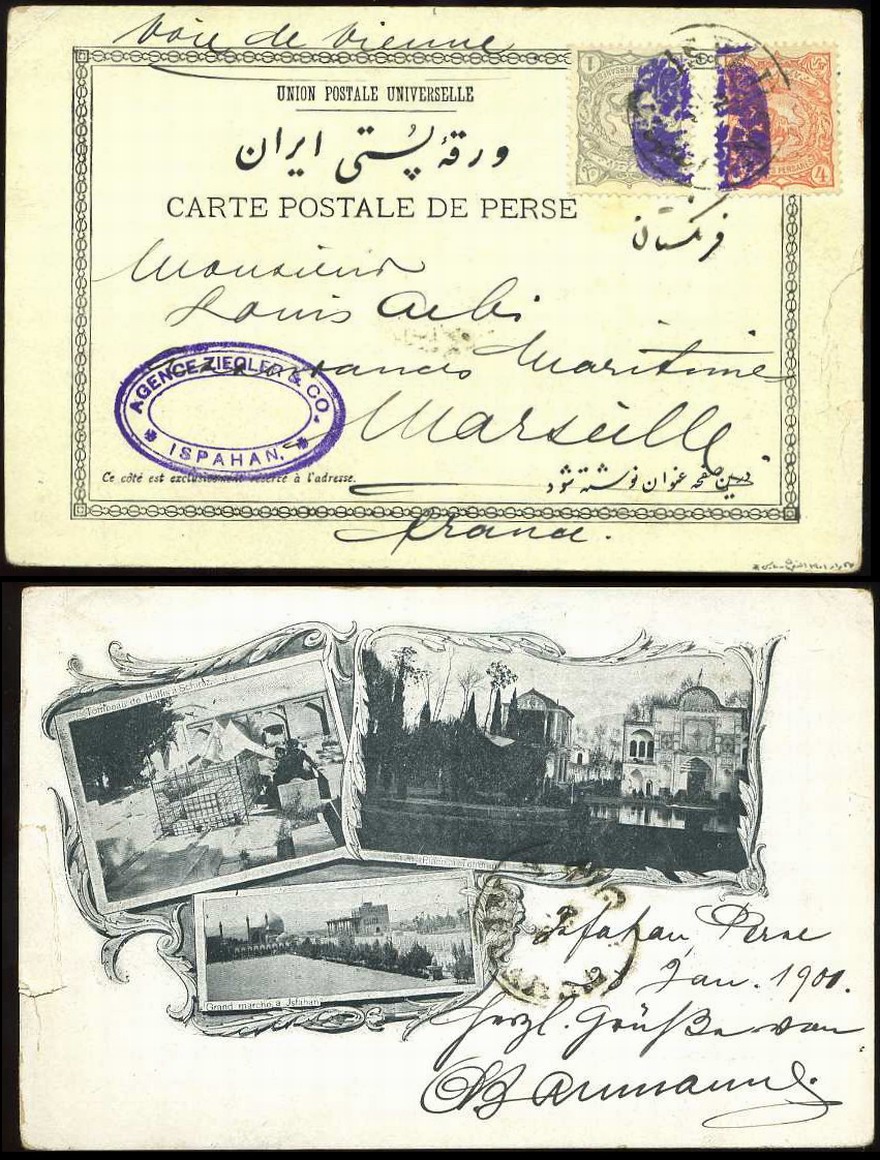 Voie de Vienne
UNION POSTALE UNIVERSELLE
ورقهٔ پُستی ایران
CARTE POSTALE DE PERSE
1
4
فرنگستان
Monsieur
Louis
Maritimes
Marseille
AGENCE ZIEGLER & CO.
ISPAHAN.
Ce côté est exclusivement réservé à l'adresse.
در این صفحه عنوان نوشته شود
France.
Tombeau de Hafis a Schiraz
Grand marche a Jsfahan
Isfahan Perse
Jan. 1901.
Herzl. Grüße von
Baumann